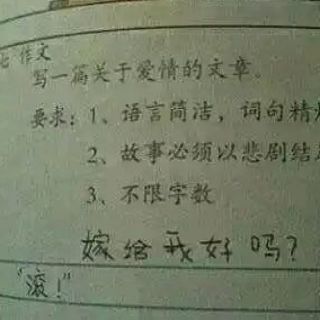 七 作文
写一篇关于爱情的文章。
要求：1、语言简洁，词句精
2、故事必须以悲剧结
3、不限字数
嫁给我好吗？
"滚！"